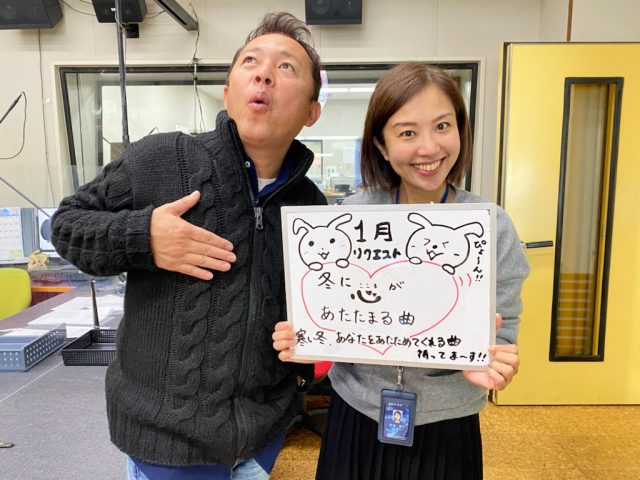 1月
リクエスト
ぴょーん!!
冬に心が
こころ
あたたまる曲
寒い冬、あなたをあたためてくれる曲
待ってま〜す!!